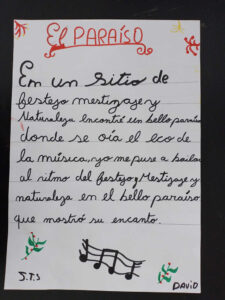 EL PARAÍSO
En un sitio de
festejo mestizaje y
Naturaleza encontré un bello paraiso
donde se oía el eco de
la música, yo me puse a bailar
al ritmo del festejo, Mestizaje y
naturaleza en el bello paraiso
que mostró su encanto.
J.T.S
DAVID